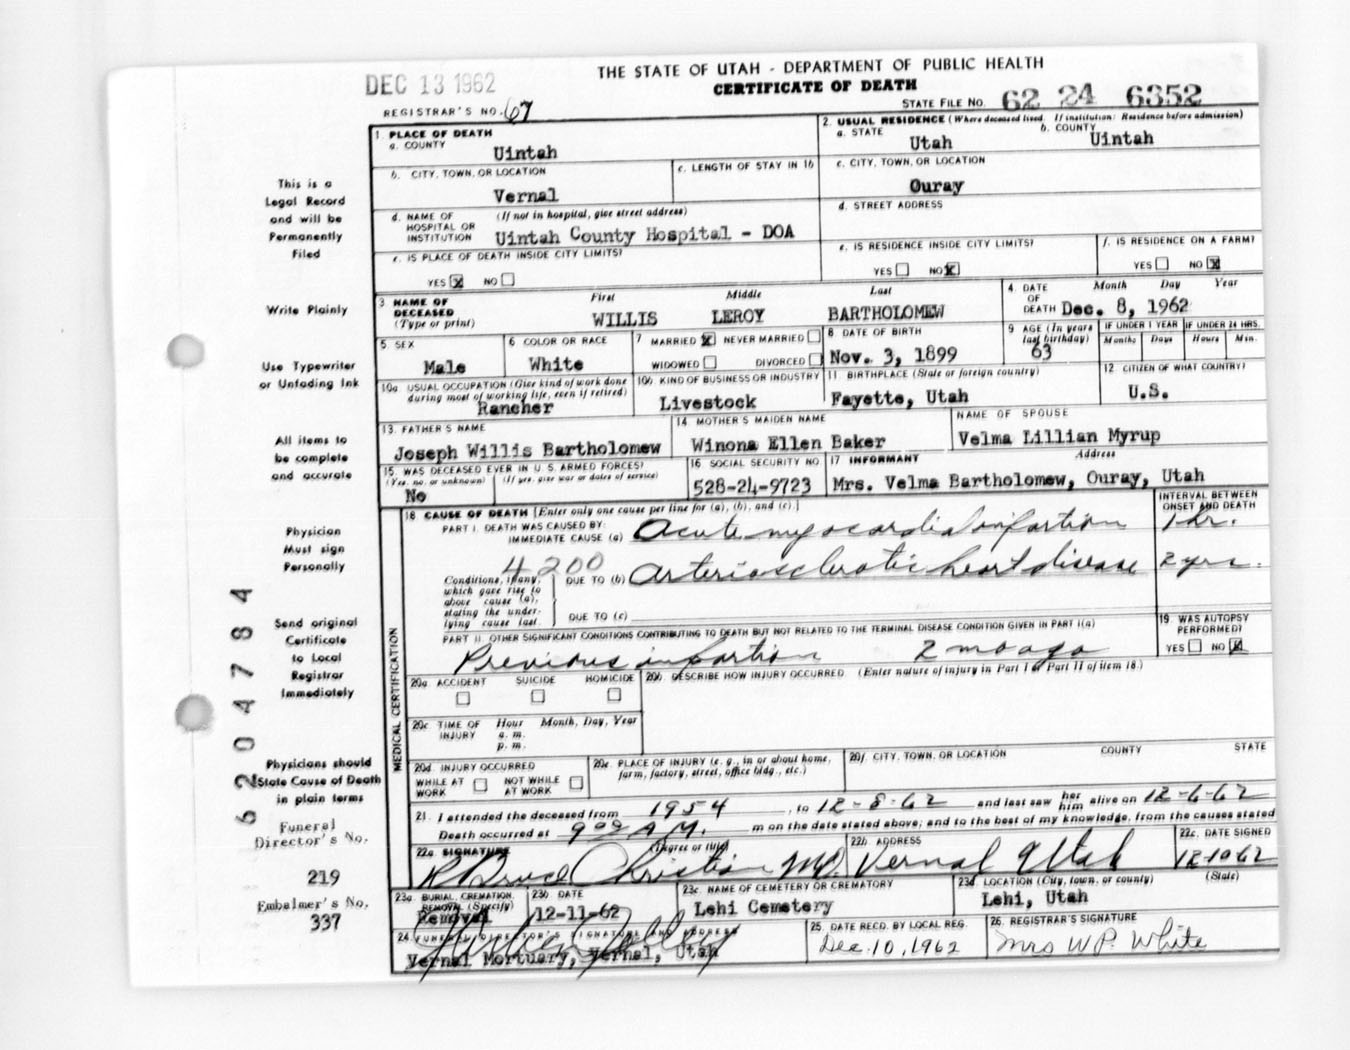 DEC 13 1962
THE STATE OF UTAH - DEPARTMENT OF PUBLIC HEALTH
CERTIFICATE OF DEATH
REGISTRAR'S NO. 67
STATE FILE NO. 62 24 6352
1. PLACE OF DEATH
a. COUNTY
Uintah
2. USUAL RESIDENCE (Where deceased lived. If institution: Residence before admission)
a. STATE
Utah
b. COUNTY
Uintah
b. CITY, TOWN, OR LOCATION
Vernal
c. LENGTH OF STAY IN 1b
c. CITY, TOWN, OR LOCATION
Ouray
d. NAME OF HOSPITAL OR INSTITUTION
(If not in hospital, give street address)
Uintah County Hospital - DOA
d. STREET ADDRESS
e. IS PLACE OF DEATH INSIDE CITY LIMITS?
YES X NO
e. IS RESIDENCE INSIDE CITY LIMITS?
YES NO X
f. IS RESIDENCE ON A FARM?
YES NO X
3 NAME OF DECEASED
(Type or print)
First Middle Last
WILLIS LEROY BARTHOLOMEW
4. DATE OF DEATH
Month Day Year
Dec. 8, 1962
5. SEX
Male
6 COLOR OR RACE
White
7 MARRIED X NEVER MARRIED
WIDOWED DIVORCED
8 DATE OF BIRTH
Nov. 3, 1899
9 AGE (In years last birthday)
63
IF UNDER 1 YEAR
Months Days
IF UNDER 24 HRS.
Hours Min.
10a USUAL OCCUPATION (Give kind of work done during most of working life, even if retired)
Rancher
10b. KIND OF BUSINESS OR INDUSTRY
Livestock
11 BIRTHPLACE (State or foreign country)
Fayette, Utah
12 CITIZEN OF WHAT COUNTRY?
U.S.
13. FATHER'S NAME
Joseph Willis Bartholomew
14 MOTHER'S MAIDEN NAME
Winona Ellen Baker
NAME OF SPOUSE
Velma Lillian Myrup
15. WAS DECEASED EVER IN U. S. ARMED FORCES?
(Yes, no, or unknown) (If yes, give war or dates of service)
No
16 SOCIAL SECURITY NO.
528-24-9723
17 INFORMANT Address
Mrs. Velma Bartholomew, Ouray, Utah
18. CAUSE OF DEATH [Enter only one cause per line for (a), (b), and (c).]
INTERVAL BETWEEN ONSET AND DEATH
PART I. DEATH WAS CAUSED BY:
IMMEDIATE CAUSE (a) Acute myocardial infarction 1 hr.
4200
Conditions, if any, which gave rise to above cause (a), stating the underlying cause last.
DUE TO (b) Arteriosclerotic heart disease 2 yrs.
DUE TO (c)
PART II. OTHER SIGNIFICANT CONDITIONS CONTRIBUTING TO DEATH BUT NOT RELATED TO THE TERMINAL DISEASE CONDITION GIVEN IN PART I(a)
Previous infarction 2 mo ago
19. WAS AUTOPSY PERFORMED?
YES NO X
20a. ACCIDENT SUICIDE HOMICIDE
20b. DESCRIBE HOW INJURY OCCURRED (Enter nature of injury in Part I or Part II of item 18.)
20c TIME OF INJURY
Hour Month, Day, Year
a. m.
p. m.
20d. INJURY OCCURRED
WHILE AT WORK NOT WHILE AT WORK
20e. PLACE OF INJURY (e. g., in or about home, farm, factory, street, office bldg., etc.)
20f. CITY, TOWN, OR LOCATION COUNTY STATE
21. I attended the deceased from 1954, to 12-8-62 and last saw her him alive on 12-6-62
Death occurred at 9 00 A.M. m on the date stated above; and to the best of my knowledge, from the causes stated
22a. SIGNATURE (Degree or title)
R Bruce Christian MD.
22b. ADDRESS
Vernal Utah
22c. DATE SIGNED
12-10-62
23a. BURIAL, CREMATION, REMOVAL (Specify)
Removal
23b DATE
12-11-62
23c NAME OF CEMETERY OR CREMATORY
Lehi Cemetery
23d LOCATION (City, town, or county) (State)
Lehi, Utah
24 FUNERAL DIRECTOR'S SIGNATURE AND ADDRESS
Vernal Mortuary, Vernal, Utah
25. DATE RECD. BY LOCAL REG.
Dec. 10, 1962
26. REGISTRAR'S SIGNATURE
Mrs W.P. White
MEDICAL CERTIFICATION
This is a
Legal Record
and will be
Permanently
Filed
Write Plainly
Use Typewriter
or Unfading Ink
All items to
be complete
and accurate
Physician
Must sign
Personally
Send original
Certificate
to Local
Registrar
Immediately
Physicians should
State Cause of Death
in plain terms
Funeral
Director's No.
219
Embalmer's No.
337
6204784